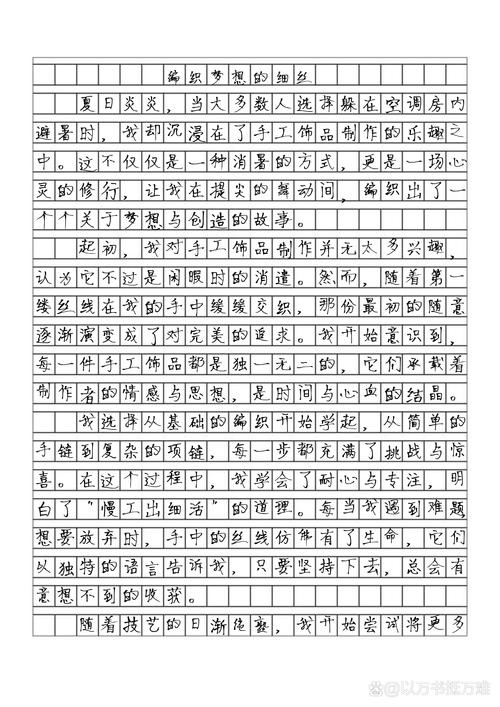 编织梦想的细丝
夏日炎炎，当大多数人选择躲在空调房内
避暑时，我却沉浸在了手工饰品制作的乐趣之
中。这不仅仅是一种消暑的方式，更是一场心
灵的修行，让我在提尖的舞动间，编织出了一
个个关于梦想与创造的故事。
起初，我对手工饰品制作并无太多兴趣，
认为它不过是闲暇时的消遣。然而，随着第一
缕丝线在我的手中缓缓交织，那份最初的随意
逐渐演变成了对完美的追求。我开始意识到，
每一件手工饰品都是独一无二的，它们承载着
制作者的情感与思想，是时间与心血的结晶。
我选择从基础的编织开始学起，从简单的
手链到复杂的项链，每一步都充满了挑战与惊
喜。在这个过程中，我学会了耐心与专注，明
白了“慢工出细活”的道理。每当我遇到难题
想要放弃时，手中的丝线仿佛有了生命，它们
以独特的语言告诉我，只要坚持下去，总会有
意想不到的收获。
随着技艺的日渐纯熟，我开始尝试将更多
@以万书抵万难